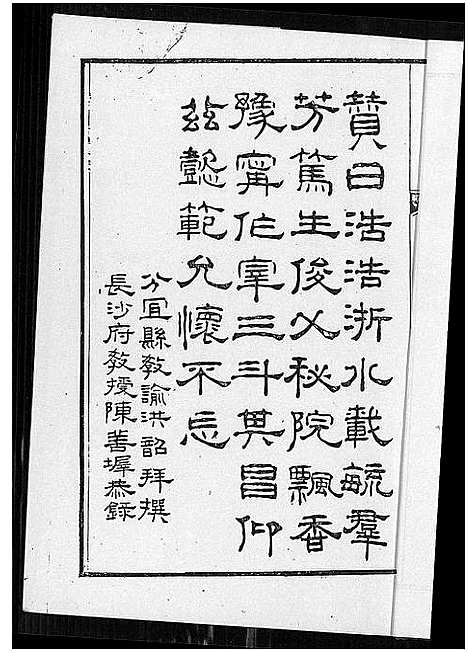 贊曰浩浩浙水載毓羣
芳篤生俊乂秘院飄香
豫甯作宰三斗其昌仰
玆懿範允懷不忘
分宜縣教諭洪韶拜撰
長沙府教授陳善墀恭錄